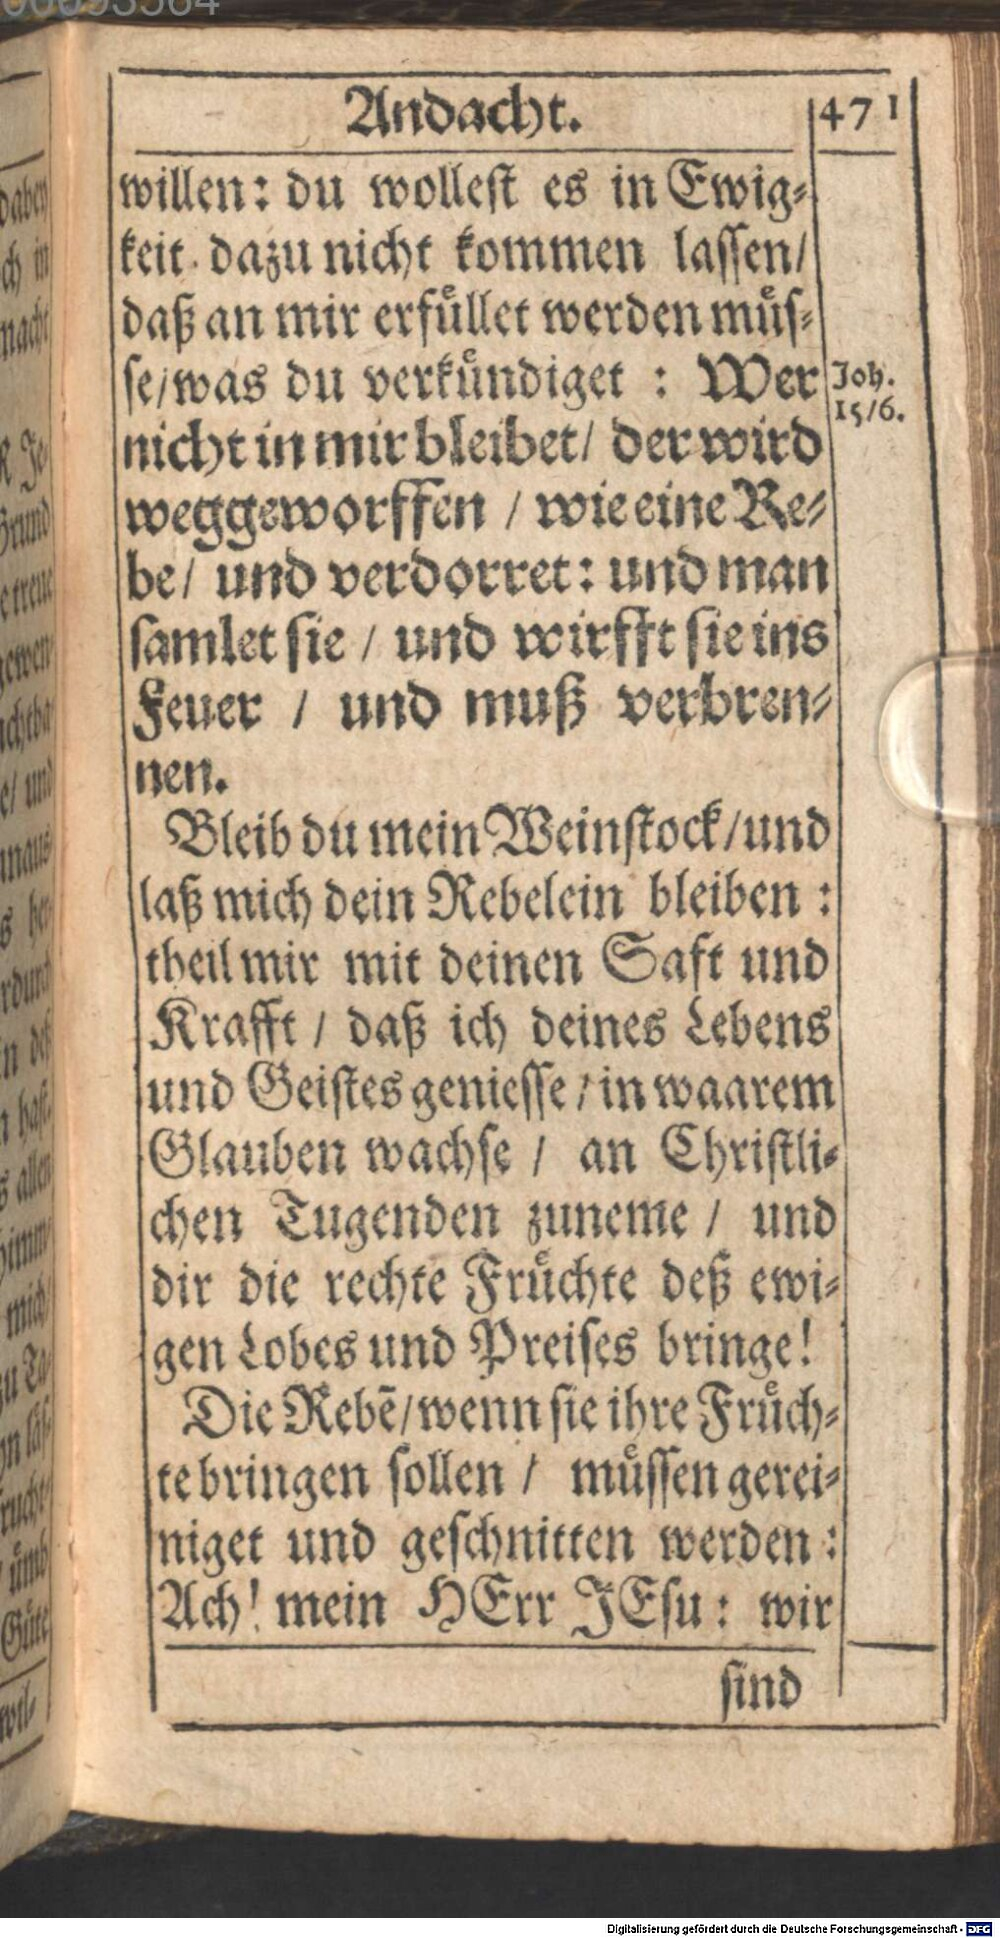 Andacht. 471
willen: du wollest es in Ewig-
keit dazu nicht kommen lassen/
daß an mir erfuͤllet werden muͤs-
se/was du verkuͤndiget : Wer
Joh.
15/6.
nicht in mir bleibet/ der wird
weggeworffen / wie eine Re-
be/ und verdorret: und man
samlet sie / und wirfft sie ins
Feuer / und muß verbren-
nen.
Bleib du mein Weinstock/und
laß mich dein Rebelein bleiben :
theil mir mit deinen Saft und
Krafft / daß ich deines Lebens
und Geistes geniesse / in waarem
Glauben wachse / an Christli-
chen Tugenden zuneme / und
dir die rechte Fruͤchte deß ewi-
gen Lobes und Preises bringe!
Die Rebẽ/wenn sie ihre Fruͤch-
te bringen sollen / muͤssen gerei-
niget und geschnitten werden :
Ach! mein HErr JEsu: wir
sind
Digitalisierung gefördert durch die Deutsche Forschungsgemeinschaft - DFG